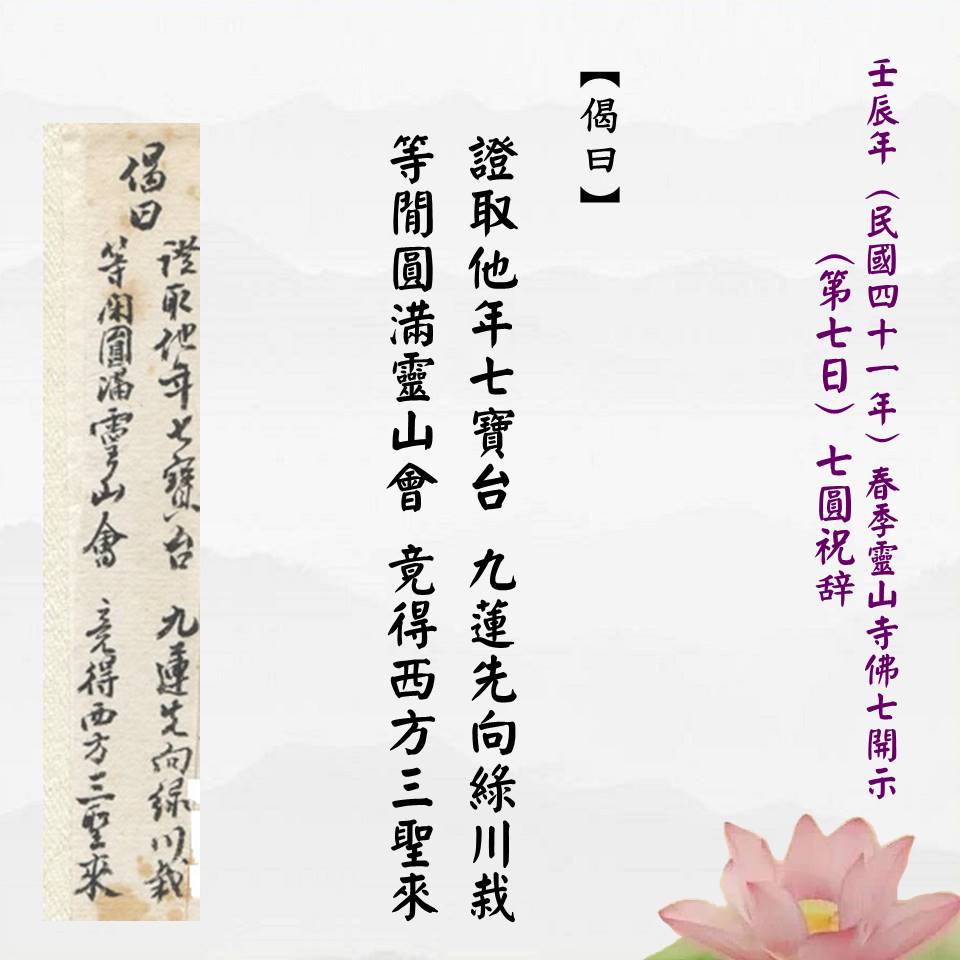 壬辰年（民國四十一年）春季靈山寺佛七開示
（第七日）七圓祝辞
【偈曰】
證取他年七寶台　九蓮先向綠川栽
等閒圓滿靈山會　竟得西方三聖來
偈曰
證取他年七寶台　九蓮先向綠川栽
等閑圓滿靈山會　竟得西方三聖來